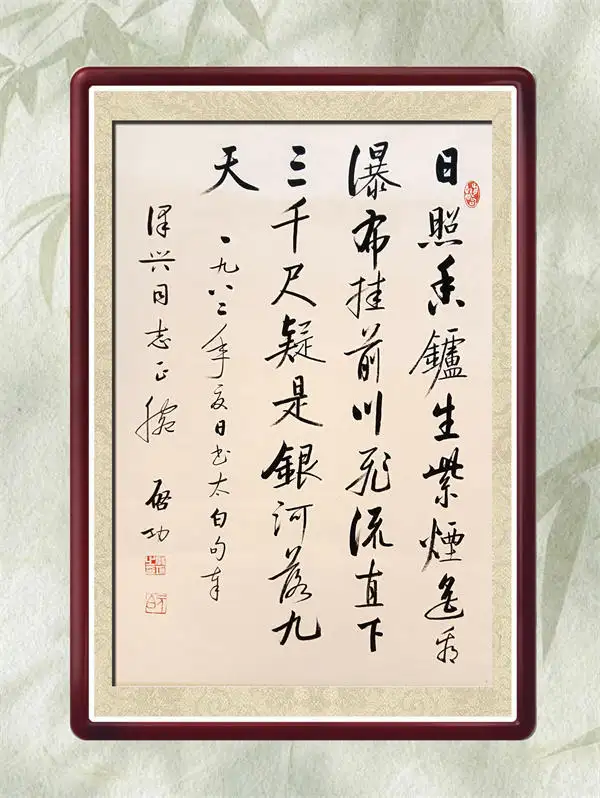 日照香鑪生紫煙遙看
瀑布挂前川飛流直下
三千尺疑是銀河落九
天
一九八二年夏日书太白句奉
泽兴同志正腕
啓功